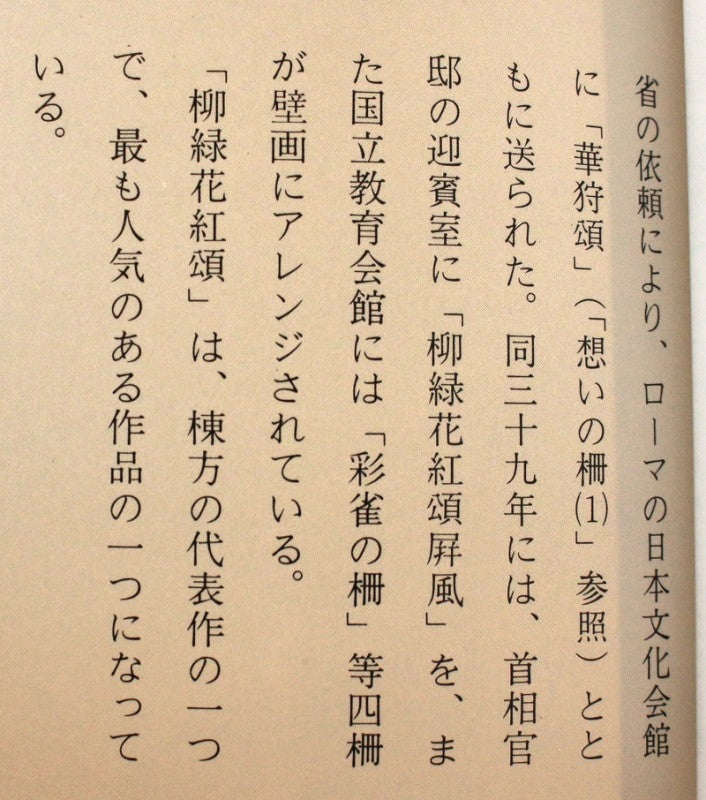 省の依頼により、ローマの日本文化会館
に「華狩頌」（「想いの柵⑴」参照）とと
もに送られた。同三十九年には、首相官
邸の迎賓室に「柳緑花紅頌屛風」を、ま
た国立教育会館には「彩雀の柵」等四柵
が壁画にアレンジされている。
「柳緑花紅頌」は、棟方の代表作の一つ
で、最も人気のある作品の一つになって
いる。